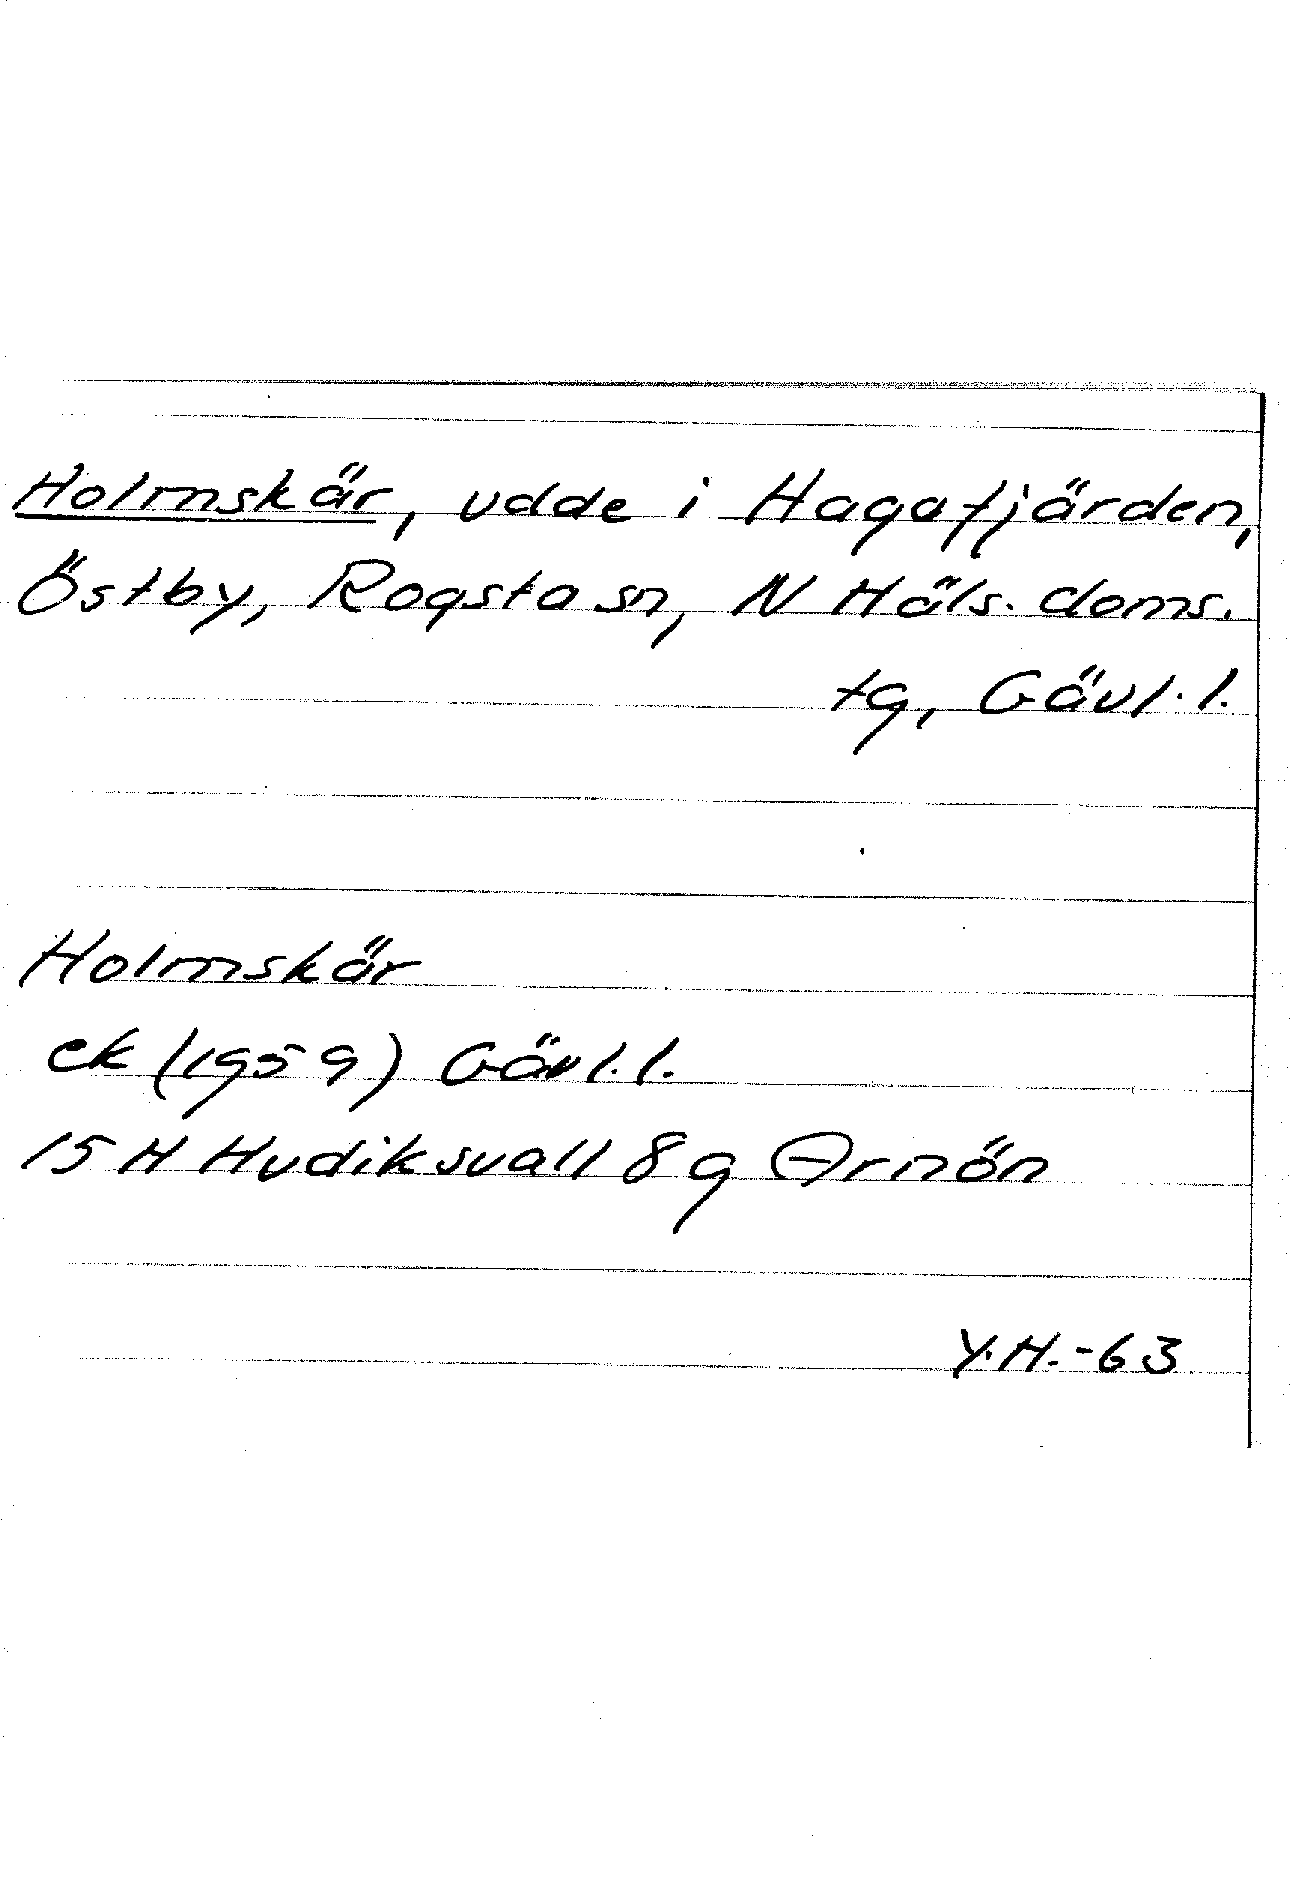 Holmskär, udde i Hagafjärden,
Östby, Rogsta sn, N Häls. doms.
tg, Gävl. l.
Holmskär
ek (1959) Gävl. l.
15 H Hudiksvall 8 g Arnön
Y.H. -63